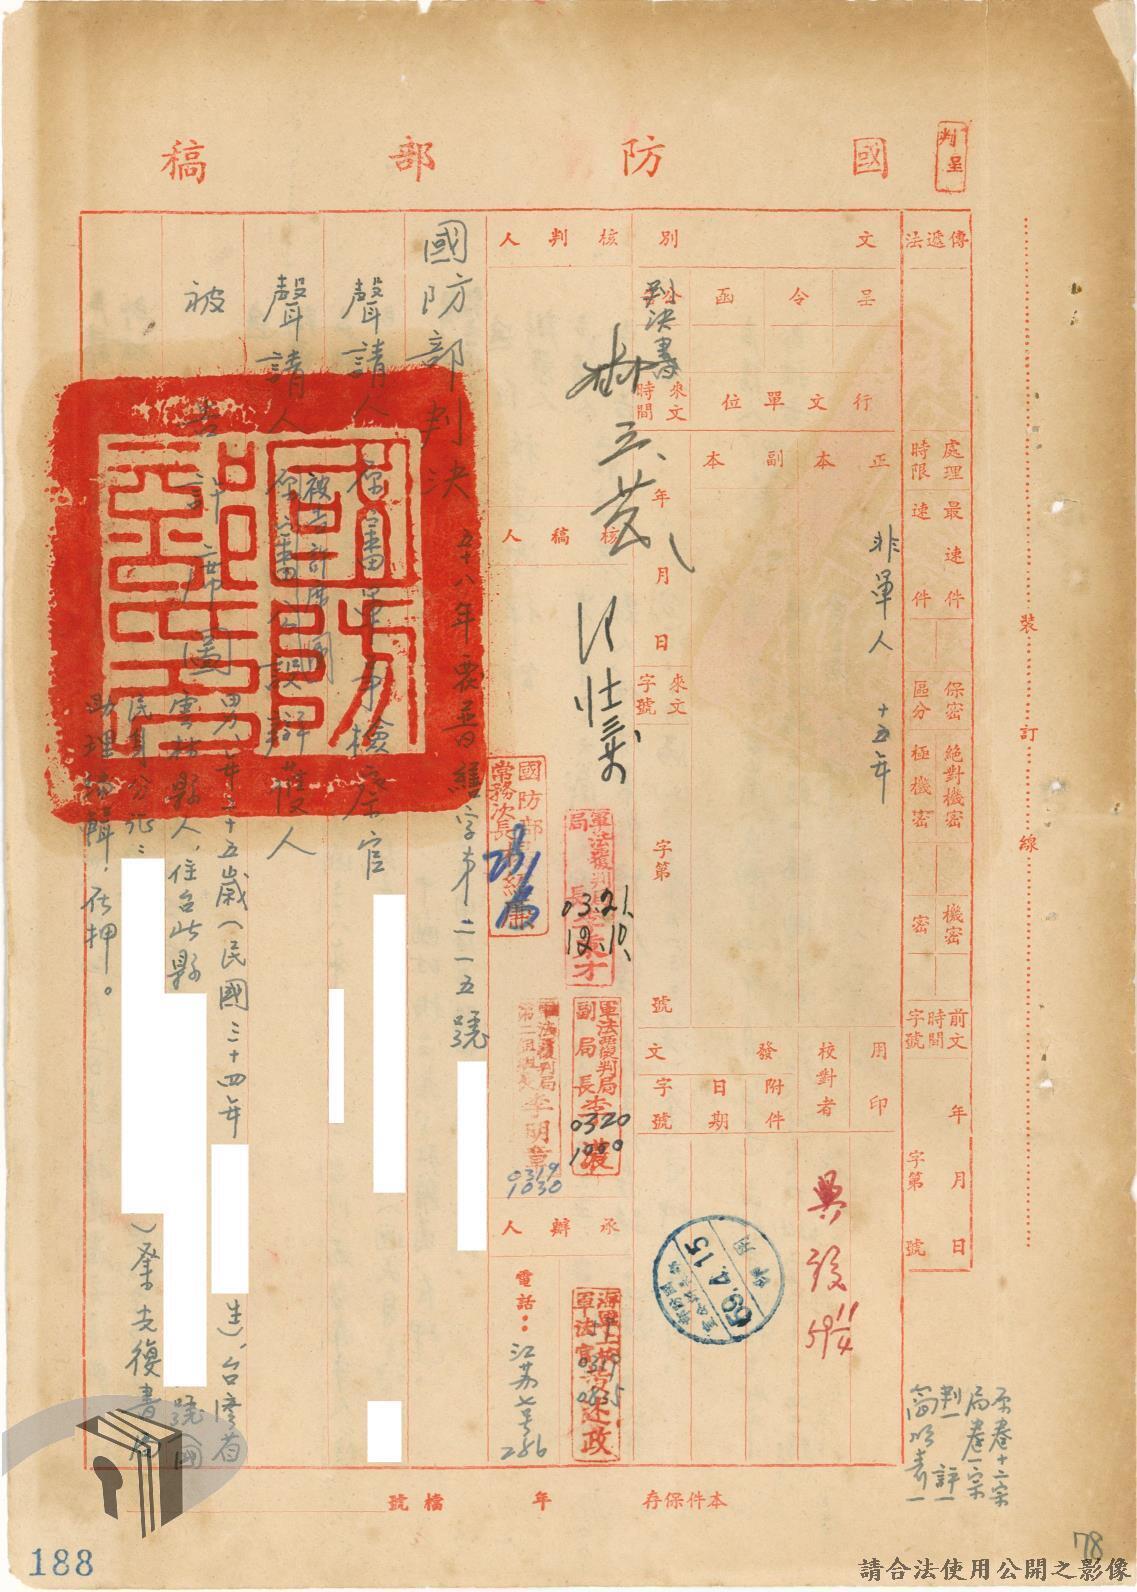 判呈
國防部稿
傳遞法
處理時限
最速件
速件
保密區分
絕對機密
極機密
機密
密
前文時間字號
年
月
日
字第
號
文別
呈
令
函
公告
判決書
行文單位
正本
副本
非軍人 十五年
來文時間
年
月
日
來文字號
字第
號
用印
校對者
發文
附件
日期
字號
59.4.15
核判人
核稿人
國防部
常務次長
軍法覆判局
局長
03.21.
12.10.
軍法覆判局
副局長
0320
1000
軍法覆判局
李明章
0319
1030
承辦人
電話：江蘇七号286
海軍上校
軍法官
國防部判決
五十八年覆普繕字第二一五號
聲請人
原審軍事檢察官
被告許席圖
聲請人
原審公設辯護人
被告
許席圖
男，年二十五歲（民國三十四年
生），台灣省
雲林縣人，住台北縣
號（國
民身分證：
）業光復書局
助理編輯，在押。
國防部印
原卷十二宗
局卷一宗
判一 評一
簡明表一
裝訂線
本件保存
年
檔號
188
78
請合法使用公開之影像